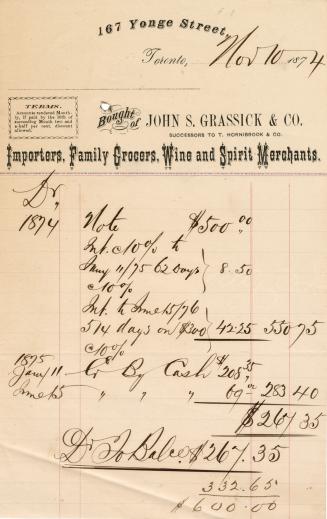 167 Yonge Street
Toronto, Nov 10 1874
TERMS.
Accounts rendered Monthly, if paid by the 20th of succeeding Month two and a half per cent. discount allowed.
Bought of JOHN S. GRASSICK & CO.
SUCCESSORS TO T. HORNIBROOK & CO.
Importers, Family Grocers, Wine and Spirit Merchants.
Dr
1874 Note $500.00
Int. c 10% to
Jany 11/75 62 days 8.50
c 10%
Int. to June 15/76
514 days on $300 42.25 550 75
c 10%
1875
Jany 11 Cr By Cash $205.35
June 15 " " " 69- 283 40
$267.35
Dr To Balce. $267.35
332.65
$600.00